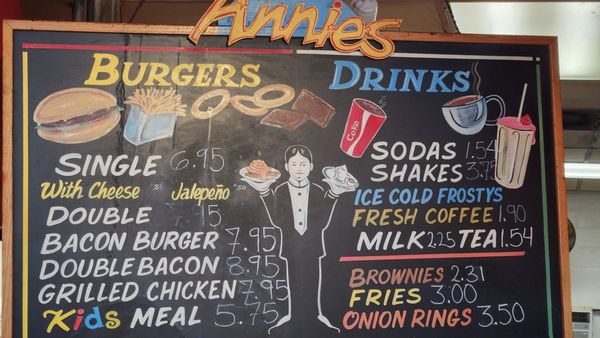 Annies
BURGERS
SINGLE 6.95
With Cheese .51 Jalapeño .50
DOUBLE 7.95
BACON BURGER 7.95
DOUBLE BACON 8.95
GRILLED CHICKEN 7.95
Kids MEAL 5.75
DRINKS
Coke
SODAS 1.54
SHAKES 3.75
ICE COLD FROSTYS
FRESH COFFEE 1.90
MILK 2.25 TEA 1.54
BROWNIES 2.31
FRIES 3.00
ONION RINGS 3.50